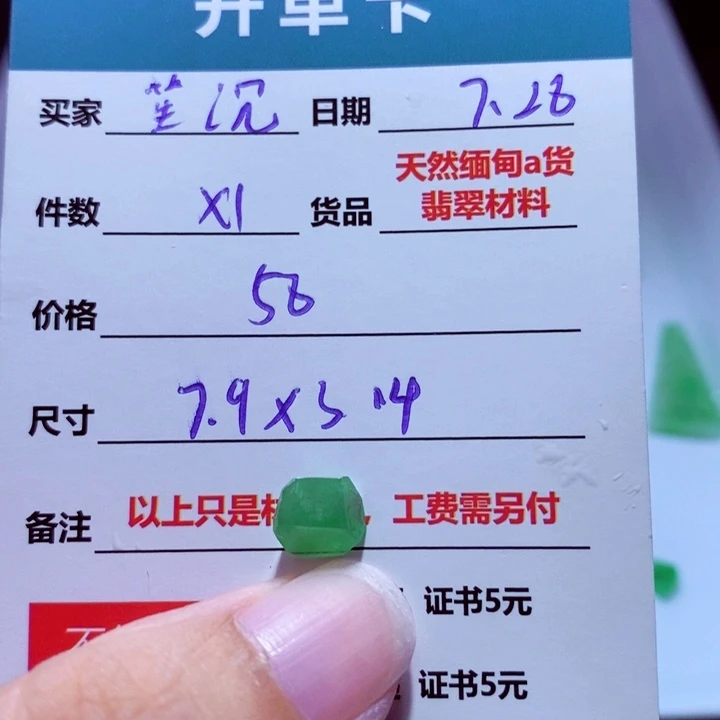 开单卡
买家 笙沉 日期 7.28
天然缅甸a货
件数 X1 货品 翡翠材料
价格 58
尺寸 7.9X5.4
备注 以上只是 ，工费需另付
证书5元
证书5元